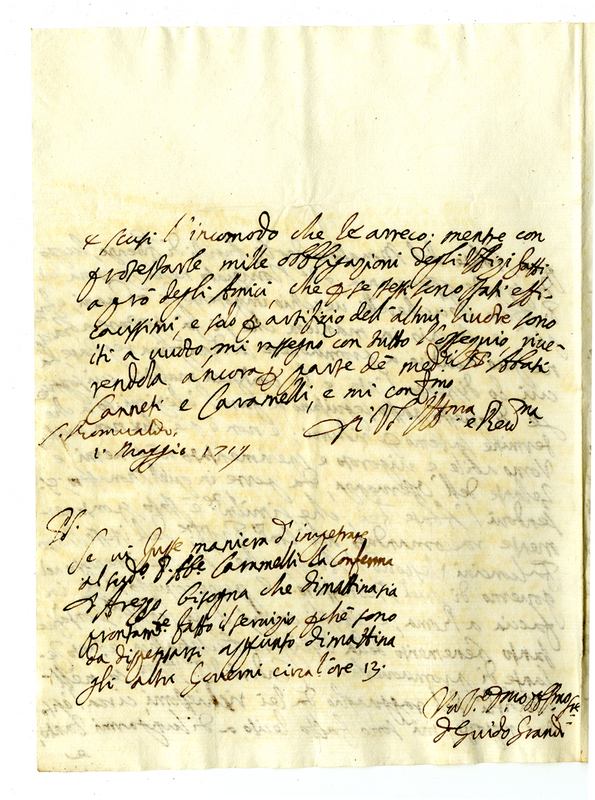 e scusi l'incomodo che le arreco; mentre con
protestarle mille obbligazioni degli Uffizi fatti
a prò degli Amici, che p se stessi sono stati effi-
cacissimi, e solo p artifizio dell'altrui livore sono
iti a vuoto, mi rassegno con tutto l'ossequio, rive-
rendola ancora p parte de med.mi PP. Abati
Canneti e Caramelli, e mi confmo
Di V. S. Illma e Revma
S. Romualdo.
1. Maggio 1717
PS.
Se vi fusse maniera d'impetrare
al sudo. P. Abe Caramelli la Conferma
d'Arezzo, bisogna che dimattina sia
prontamte fatto il servizio, pchè sono
da dispensarsi appunto dimattina
gli altri Governi circa l'ore 13.
D. Guido Grandi